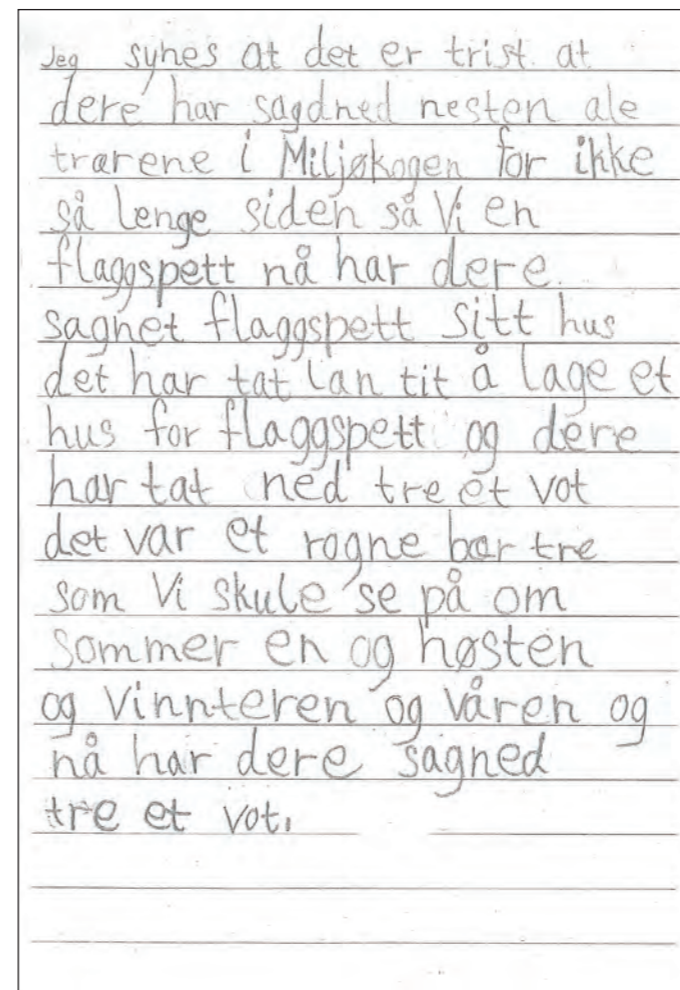 Jeg synes at det er trist at
dere har sagdned nesten ale
trærene i Miljøkogen for ikke
så lenge siden så Vi en
flaggspett nå har dere.
sagnet flaggspett sitt hus
det har tat lan tit å lage et
hus for flaggspett og dere
har tat ned tre et vot
det var et rogne bær tre
som Vi skule se på om
sommer en og høsten
og Vinnteren og våren og
nå har dere sagned
tre et vot.